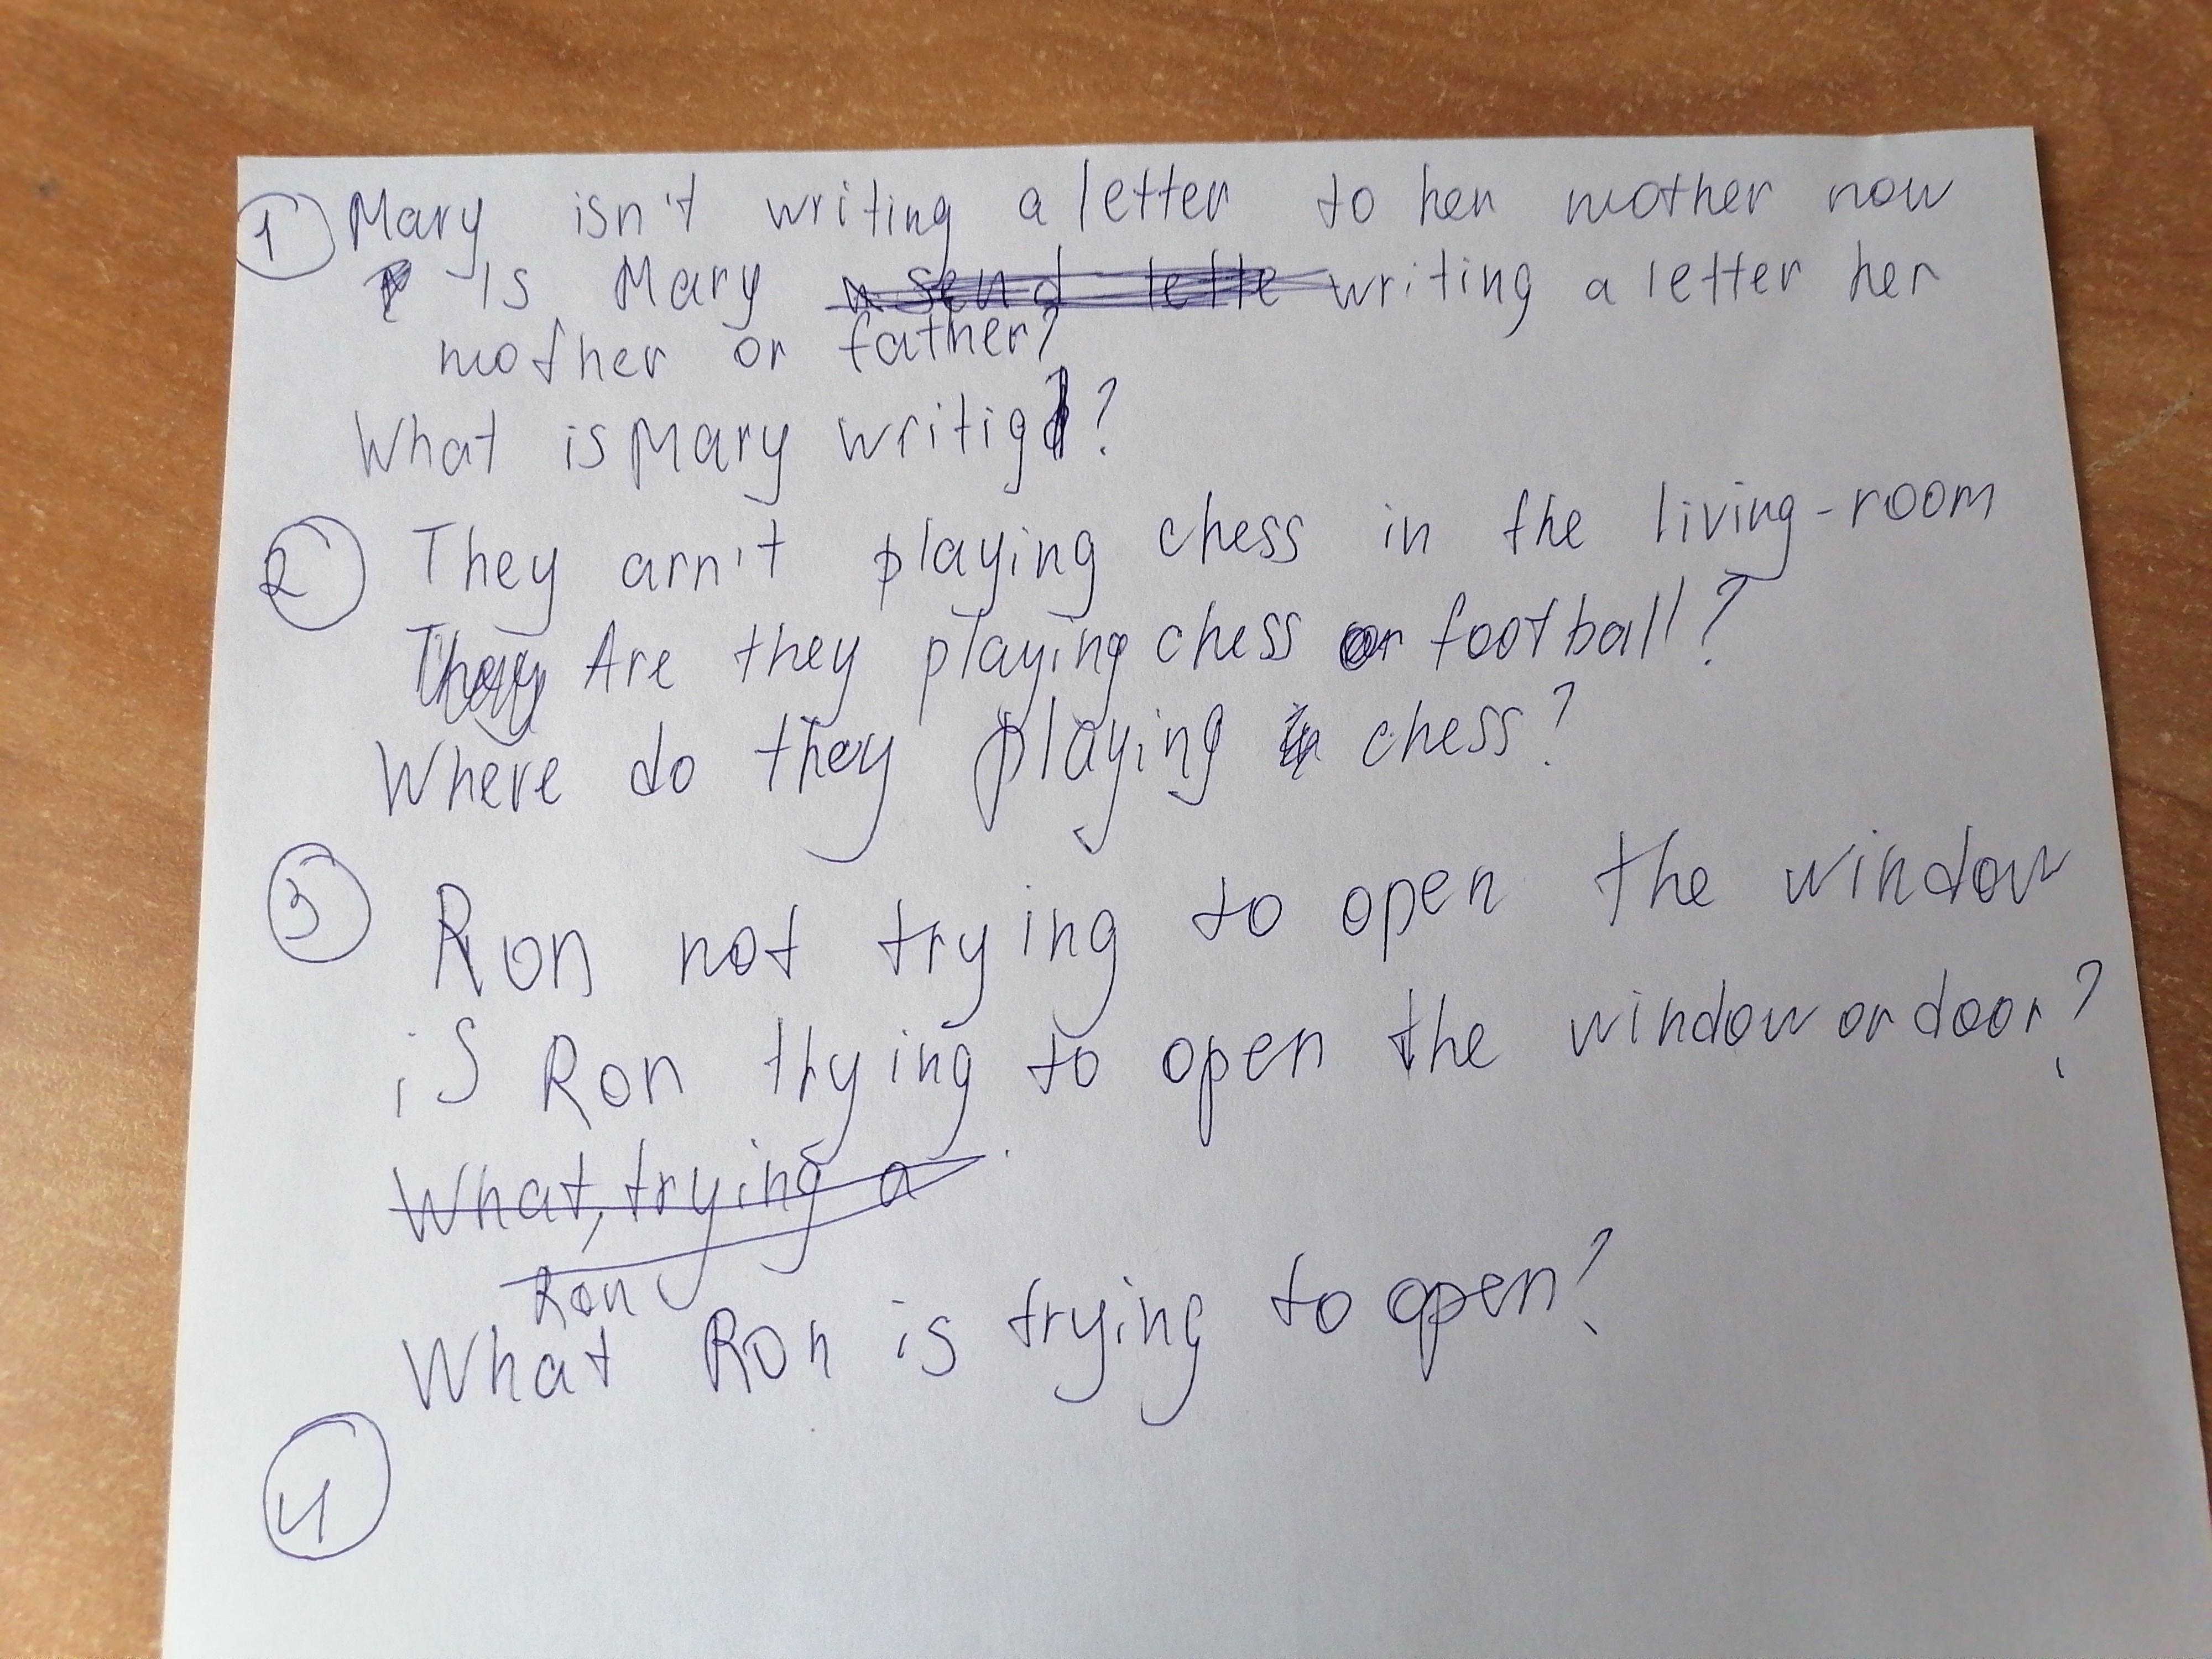 1 Mary isn't writing a letter to her mother now
Is Mary send lette writing a letter her
mother or father?
What is Mary writig?
2 They arn't playing chess in the living-room
They Are they playing chess or football?
Where do they playing in chess?
3 Ron not trying to open the window
is Ron trying to open the window or door?
What, trying a
Ron
What Ron is trying to open?
4